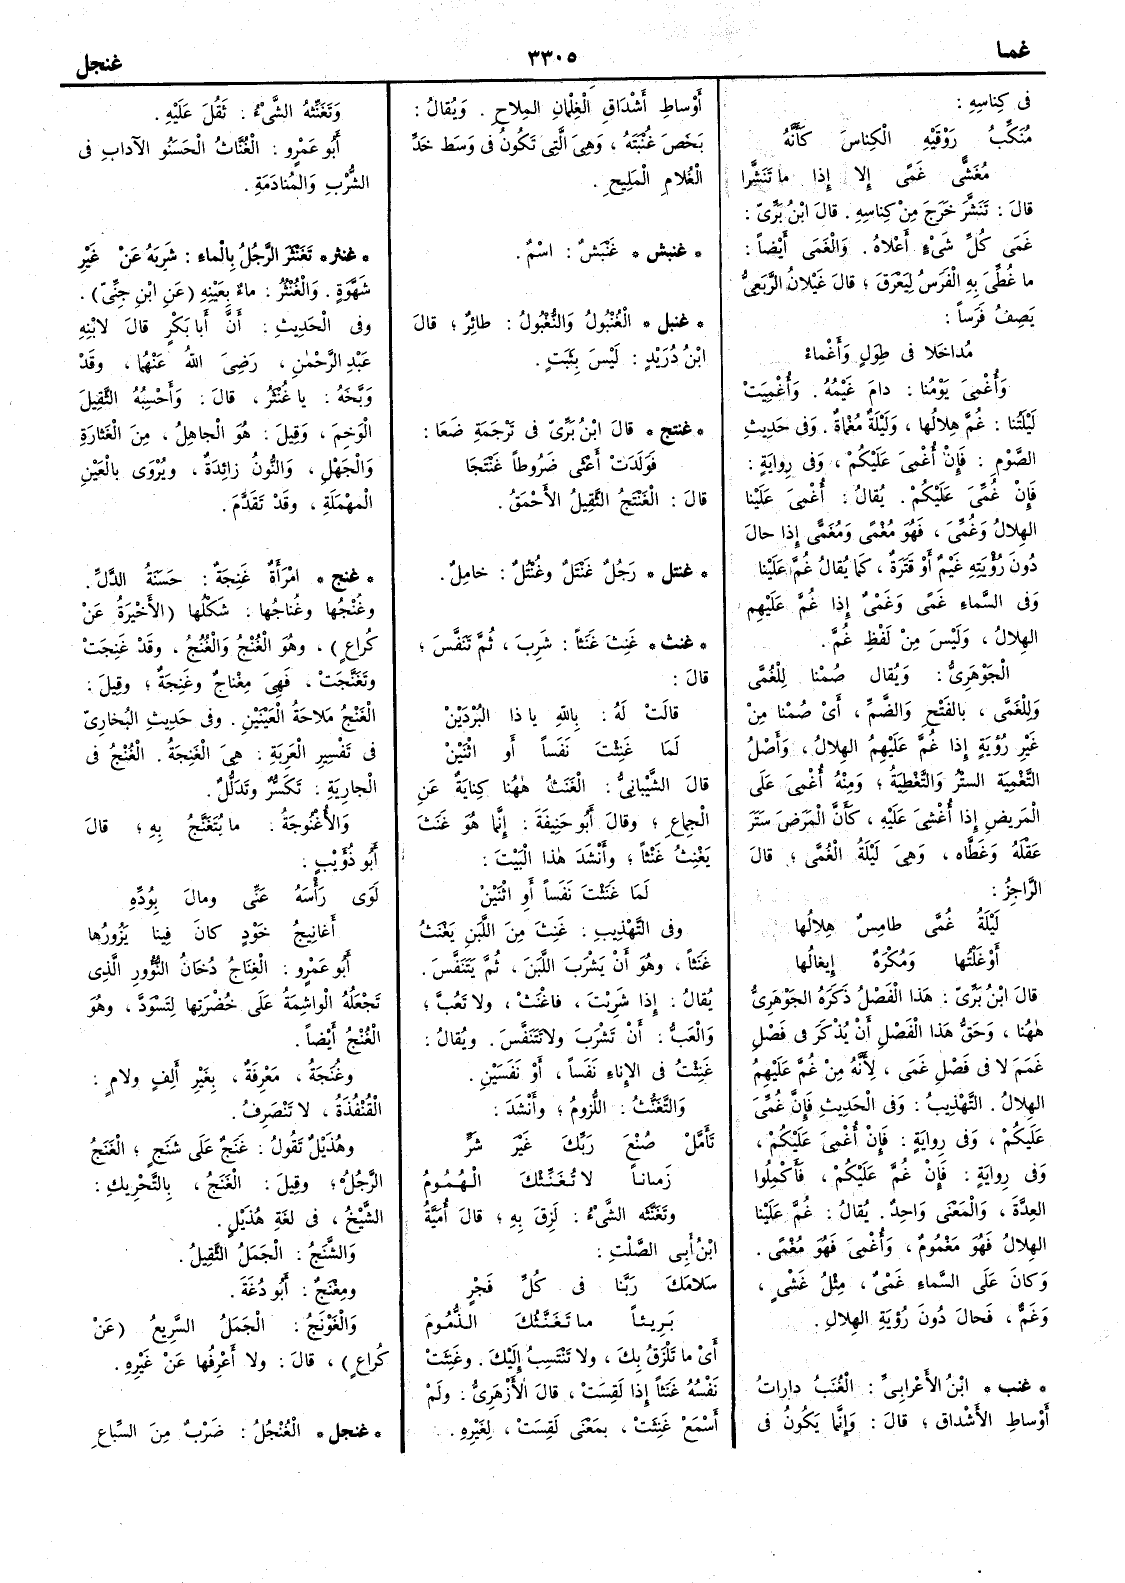 غما
٣٣٠٥
غنجل
فى كِناسِهِ :
مُنَكِّبُ رَوْقَيْهِ الْكِناسَ كَأَنَّهُ
مُغَشًّى غَمًى إِلا إِذا ما تَنَشَّرا
قالَ : تَنَشَّرَ خَرَجَ مِنْ كِناسِهِ . قالَ ابْنُ بَرِّىّ :
غَمَى كُلِّ شَىْءٍ أَعْلاهُ . وَالْغَمَى أَيْضاً :
ما غُطِّىَ بِهِ الْفَرَسُ لِيَعْرَقَ ؛ قالَ غَيْلانُ الرَّبَعِىُّ
يَصِفُ فَرَساً :
مُداخَلا فى طِوَلٍ وَأَغْماءْ
وَأُغْمِىَ يَوْمُنا : دامَ غَيْمُهُ . وَأُغْمِيَتْ
لَيْلَتُنا : غُمَّ هِلالُها ، وَلَيْلَةٌ مُغْماةٌ . وَفى حَدِيثِ
الصَّوْمِ : فَإِنْ أُغْمِىَ عَلَيْكُمْ ، وَفى رِوايَةٍ :
فَإِنْ غُمِّىَ عَلَيْكُمْ . يُقالُ : أُغْمِىَ عَلَيْنا
الهِلالُ وَغُمِّىَ ، فَهُوَ مُغْمًى وَمُغَمًّى إِذا حالَ
دُونَ رُؤْيَتِهِ غَيْمٌ أَوْ قَتَرَةٌ ، كَما يُقالُ غُمَّ عَلَيْنا
وَفى السَّماءِ غَمًى وَغَمْىٌ إِذا غُمَّ عَلَيْهِم
الهِلالُ ، وَلَيْسَ مِنْ لَفْظِ غُمَّ .
الْجَوْهَرِىُّ : وَيُقال صُمْنا لِلْغُمَّى
وَلِلْغَمَى ، بِالفَتْحِ وَالضَّمِّ ، أَىْ صُمْنا مِنْ
غَيْرِ رُؤْيَةٍ إِذا غُمَّ عَلَيْهِمُ الهِلالُ ، وَأَصْلُ
التَّغْمِيَة السترُ وَالتَّغْطِيَةُ ؛ وَمِنْهُ أُغْمِىَ عَلَى
الْمَرِيضِ إِذا أُغْشِىَ عَلَيْهِ ، كَأَنَّ الْمَرَضَ سَتَرَ
عَقْلَهُ وَغَطَّاه ، وَهِىَ لَيْلَةُ الْغُمَّى ؛ قالَ
الرَّاجِزُ :
لَيْلَةُ غُمَّى طامِسٌ هِلالُها
أَوْغَلْتُها وَمُكْرَهٌ إِيغالُها
قالَ ابْنُ بَرِّىّ : هَذا الْفَصْلُ ذَكَرَهُ الْجَوْهَرِىُّ
هٰهُنا ، وَحَقُّ هَذا الْفَصْلِ أَنْ يُذْكَرَ فى فَصْلِ
غَمَمَ لا فى فَصْلِ غَمَى ، لِأَنَّهُ مِنْ غُمَّ عَلَيْهِمُ
الهِلالُ . التَّهْذِيبُ : وَفى الْحَدِيثِ فَإِنْ غُمِّىَ
عَلَيكُمْ ، وَفى رِوايَةٍ : فَإِنْ أُغْمِىَ عَلَيْكُمْ ،
وَفى رِوايَةٍ : فَإِنْ غُمَّ عَلَيْكُمْ ، فَأَكْمِلُوا
العِدَّةَ ، وَالْمَعْنَى وَاحِدٌ . يُقالُ : غُمَّ عَلَيْنا
الهِلالُ فَهُوَ مَغْمُومٌ ، وَأُغْمِىَ فَهُوَ مُغْمًى .
وَكانَ عَلَى السَّماءِ غَمْىٌ ، مِثْلُ غَشْىٍ ،
وَغَمٌّ ، فَحالَ دُونَ رُؤْيَةِ الهِلالِ .
* غنب * ابْنُ الأَعْرابِىِّ : الْغُنَبُ داراتُ
أَوْساطِ الأَشْداقِ ؛ قالَ : وَإِنَّما يَكُونُ فى
أَوْساطِ أَشْدَاقِ الْغِلْمانِ المِلاحِ . وَيُقالُ :
بَخَصَ غُنْبَتَهُ ، وَهِىَ الَّتِى تَكُونُ فى وَسَط خَدِّ
الْغُلامِ الْمَلِيحِ .
* غنبش * غَنْبَشٌ : اسْمٌ .
* غنبل * الْغُنْبُولُ وَالنُّغْبُولُ : طائِرٌ ؛ قالَ
ابْنُ دُرَيْدٍ : لَيْسَ بِثَبَتٍ .
* غنتج * قالَ ابْنُ بَرِّىّ فى تَرْجَمَةِ ضَعَا :
فَوَلَدَتْ أَعْثَى ضَرُوطاً غَنْتَجَا
قالَ : الْغَنْتَجُ الثَّقِيلُ الأَحْمَقُ .
* غنتل * رَجُلٌ غَنْتَلٌ وغُنْتُلٌ : خامِلٌ .
* غنث * غَنِثَ غَنَثاً : شَرِبَ ، ثُمَّ تَنَفَّسَ ؛
قالَ :
قالَتْ لَهُ : بِاللهِ يا ذا الْبُرْدَيْنْ
لَمَا غَنِثْتَ نَفَساً أَو اثْنَيْنْ
قالَ الشَّيْبانِىُّ : الْغَنَثُ هٰهُنا كِنايَةٌ عَنِ
الْجِماعِ ؛ وقالَ أَبُو حَنِيفَةَ : إِنَّما هُوَ غَنَثَ
يَغْنِثُ غَنْثاً ؛ وأَنْشَدَ هٰذا الْبَيْتَ :
لَمَا غَنَثْتَ نَفَساً أَوِ اثْنَيْنْ
وفى التَّهْذِيبِ : غَنِثَ مِنَ اللَّبَنِ يَغْنَثُ
غَنَثاً ، وهُوَ أَنْ يَشْرَبَ اللَّبَنَ ، ثُمَّ يَتَنَفَّسَ .
يُقالُ : إِذا شَرِبْتَ ، فاغْنَثْ ، ولا تَعُبَّ ؛
وَالْعَبُّ : أَنْ تَشْرَبَ ولا تَتَنَفَّسَ . ويُقالُ :
غَنِثْتُ فى الإِناءِ نَفَساً ، أَوْ نَفَسَيْنِ .
وَالتَّغَنُّثُ : اللُّزُومُ ؛ وأَنْشَدَ :
تَأَمَّلْ صُنْعَ رَبِّكَ غَيْرَ شَرٍّ
زَماناً لا تُغَنِّثْكَ الْهُمُومُ
وتَغَنَّثَه الشَّىْءُ : لَزِقَ بِهِ ؛ قالَ أُمَيَّةُ
ابْنُ أَبِى الصَّلْتِ :
سَلامَكَ رَبَّنا فى كُلِّ فَجْرٍ
بَرِيئاً ما تَغَنَّثُكَ الذُّمُومُ
أَىْ ما تَلْزَقُ بِكَ ، ولا تَنْتَسِبُ إِلَيْكَ . وغَنِثَتْ
نَفْسُهُ غَنَثاً إِذا لَقِسَتْ ، قالَ الأَزْهَرِىُّ : ولَمْ
أَسْمَعْ غَنِثَتْ ، بِمَعْنَى لَقِسَتْ ، لِغَيْرِهِ .
وَتَغَنَّثَهُ الشَّىْءُ : ثَقُلَ عَلَيْهِ .
أَبُو عَمْرٍو : الْغُنَّاثُ الْحَسَنُو الآدابِ فى
الشُّرْبِ وَالمُنادَمَةِ .
* غنثر * تَغَنْثَرَ الرَّجُلُ بِالْماءِ : شَرِبَهُ عَنْ غَيْرِ
شَهْوَةٍ . وَالْغُنْثُرُ : ماءٌ بِعَيْنِهِ (عَنِ ابْنِ جِنِّىّ) .
وفى الْحَدِيثِ : أَنَّ أَبا بَكْرٍ قالَ لابْنِهِ
عَبْدِ الرَّحْمٰنِ ، رَضِىَ اللهُ عَنْهُما ، وقَدْ
وَبَّخَهُ : يا غُنْثَرُ ، قالَ : وَأَحْسِبُهُ الثَّقِيلَ
الْوَخِمَ ، وَقِيلَ : هُوَ الْجاهِلُ ، مِنَ الْغَثارَةِ
وَالْجَهْلِ ، وَالنُّونُ زائِدَةٌ ، ويُرْوَى بالْعَيْنِ
الْمهْمَلَةِ ، وقَدْ تَقَدَّمَ .
* غنج * امْرَأَةٌ غَنِجَةٌ : حَسَنَةُ الدَّلِّ .
وغُنْجُها وغُناجُها : شَكْلُها (الأَخِيرَةُ عَنْ
كُراعٍ) ، وهُوَ الْغُنْجُ وَالْغُنُجُ ، وقَدْ غَنِجَتْ
وتَغَنَّجَتْ ، فَهِىَ مِغْناجٌ وغَنِجَةٌ ؛ وقِيلَ :
الْغَنْجُ مَلاحَةُ الْعَيْنَيْنِ . وفى حَدِيثِ الْبُخارِىّ
فى تَفْسِيرِ الْعَرِبَةِ : هِىَ الْغَنِجَةُ . الْغُنْجُ فى
الْجارِيَةِ : تَكَسُّرٌ وتَدَلُّلٌ .
وَالأُغْنُوجَةُ : ما يُتَغَنَّجُ بِهِ ؛ قالَ
أَبُو ذُؤَيْبٍ :
لَوَى رَأْسَهُ عَنِّى ومالَ بِوُدِّهِ
أَغانِيجُ خَوْدٍ كانَ فِينا يَزُورُها
أَبُو عَمْرٍو : الْغِناجُ دُخَانُ النَّؤُورِ الَّذِى
تَجْعَلُهُ الْواشِمَةُ عَلَى خُضْرَتِها لِتَسْوَدَّ ، وهُوَ
الْغُنْجُ أَيْضاً .
وغُنَجَةُ ، مَعْرِفَةٌ ، بِغَيْرِ أَلِفٍ ولامٍ :
الْقُنْفُذَةُ ، لا تَنْصَرِفُ .
وهُذَيْلٌ تَقُولُ : غَنَجٌ عَلَى شَنَجٍ ؛ الْغَنَجُ
الرَّجُلُ ؛ وقِيلَ : الْغَنَجُ ، بِالتَّحْرِيكِ :
الشَّيْخُ ، فى لغَةِ هُذَيْلٍ .
وَالشَّنَجُ : الْجَمَلُ الثَّقِيلُ .
ومِغْنَجٌ : أَبُو دُغَةَ .
وَالْغَوْنَجُ : الْجَمَلُ السَّرِيعُ (عَنْ
كُراعٍ) ، قالَ : ولا أَعْرِفُها عَنْ غَيْرِهِ .
* غنجل * الْغُنْجُلُ : ضَرْبٌ مِنَ السِّباعِ